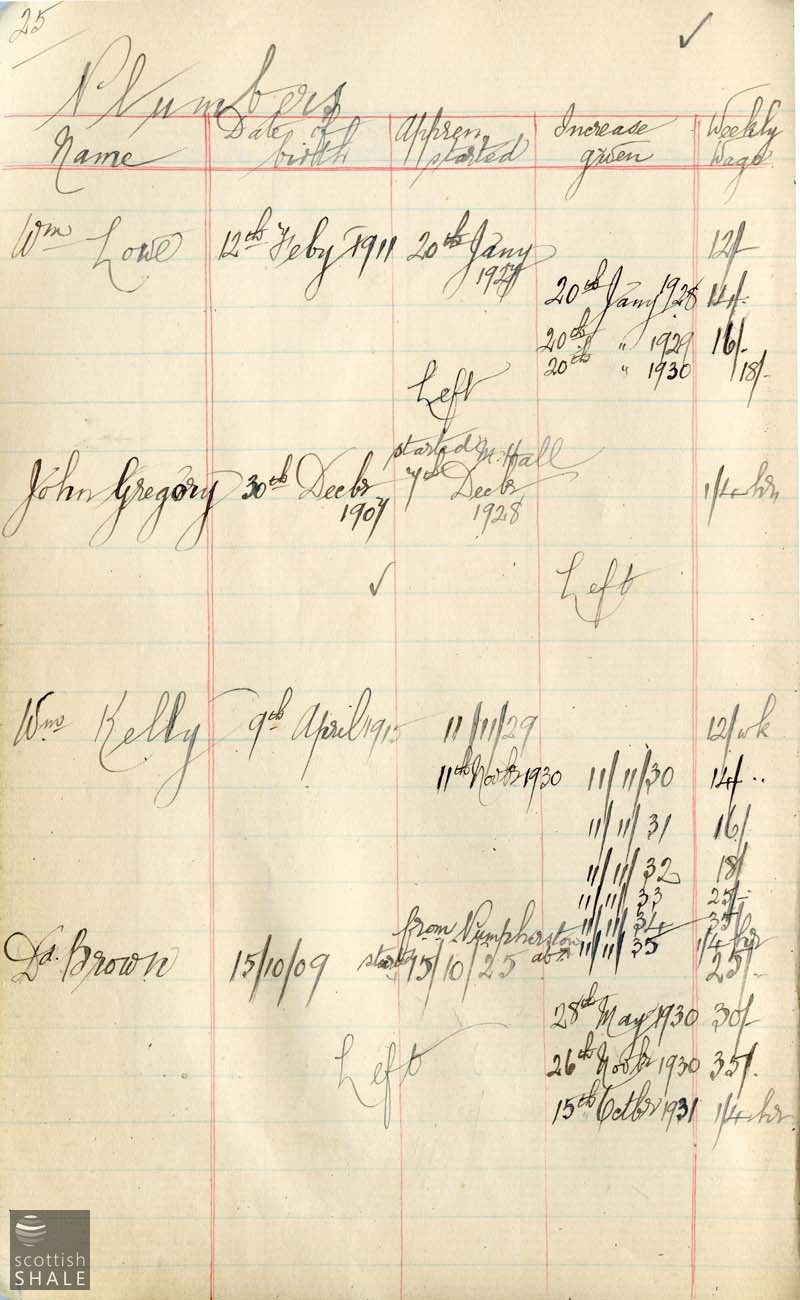 25
Plumbers
Name Date of birth Appren started Increase given Weekly Wage
Wm Lowe 12th Feby 1911 20th Jany 1927 12/-
20th Jany 1928 14/-
20th " 1929 16/-
20th " 1930 18/-
Left
started Hall
John Gregory 30th Decbr 1907 7th Decbr 1928 1/4 hr
Left
Wm Kelly 9th April 1915 11/11/29 12/ wk
11th Novbr 1930 11/11/30 14/- "
11/11/31 16/
11/11/32 18/
11/11/33 25/-
from Pumpherston 11/11/34 35/
11/11/35 1/4 hr
Dd. Brown 15/10/09 started 15/10/25 25/-
28th May 1930 30/-
26th Novbr 1930 35/-
Left
15th Octbr 1931 1/4 hr
scottish
SHALE